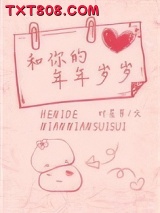 TXT808.com
和你的
年年岁岁
HENIDE
NIANNIANSUISUI